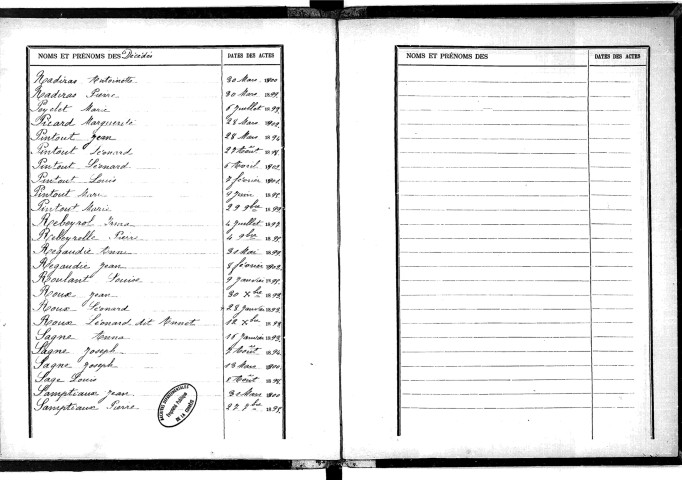 NOMS ET PRÉNOMS DES Décédés DATES DES ACTES
Nadiras Antoinette 30 Mars 1900
Nadiras Pierre 30 Mars
Peyclet Marie 6 Juillet 1899
Picard Marguerite 28 Mars 1902
Pintout Jean 28 Mars 1894
Pintout Léonard 27 Août
Pintout Léonard 6 Avril 1902
Pintout Louis 7 février
Pintout Marie 9 Juin
Pintout Marie 29 9bre 1899
Rebeyrol Irma 4 Juillet 1893
Rebeyrolle Pierre 4 9bre
Regaudie Anna 30 Mai
Regaudie Jean 8 février 1902
Roulant Louise 9 Janvier
Roux Jean 30 Xbre 1893
Roux Léonard 28 Janvier 1898
Roux Léonard dit Annet 12 Xbre 1898
Sagne Anna 15 Janvier 1893
Sagne Joseph 7 Août 1894
Sagne Joseph 13 Mars 1900
Sage Louis Août
Samptiaux Jean Mars 1900
Samptiaux Pierre 27 7bre
ARCHIVES DÉPARTEMENTALES
DE LA CORRÈZE
NOMS ET PRÉNOMS DES DATES DES ACTES